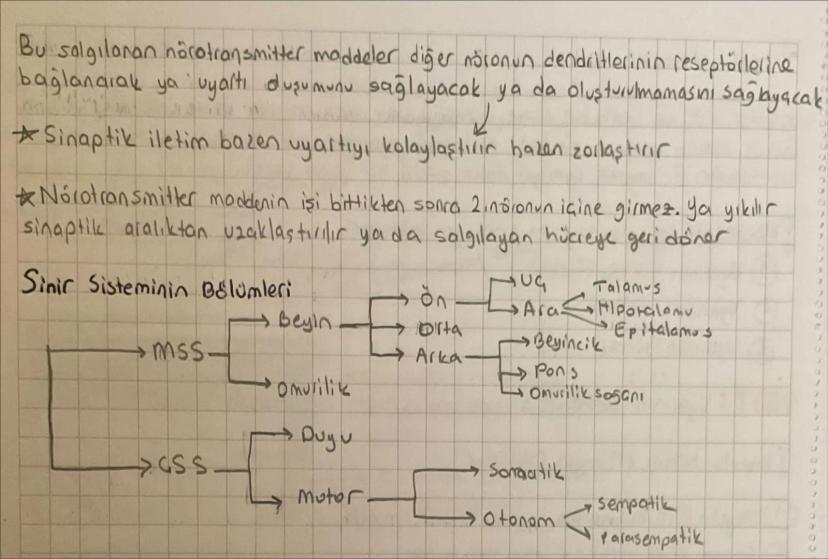 Bu salgılanan nörotransmitter maddeler diğer nöronun dendritlerinin reseptörlerine
bağlanarak ya uyartı durumunu sağlayacak ya da oluşturulmamasını sağlayacak
★ Sinaptik iletim bazen uyartıyı kolaylaştırır bazen zorlaştırır
★ Nörotransmitter maddenin işi bittikten sonra 2.nöronun içine girmez. Ya yıkılır
sinaptik aralıktan uzaklaştırılır ya da salgılayan hücreye geri döner
Sinir Sisteminin Bölümleri
MSS
Beyin
Ön
Uç
Ara
Talamus
Hipotalamu
Epitalamus
Orta
Arka
Beyincik
Pons
Omurilik soğanı
Omurilik
ÇSS
Duyu
Motor
Somatik
Otonom
Sempatik
Parasempatik